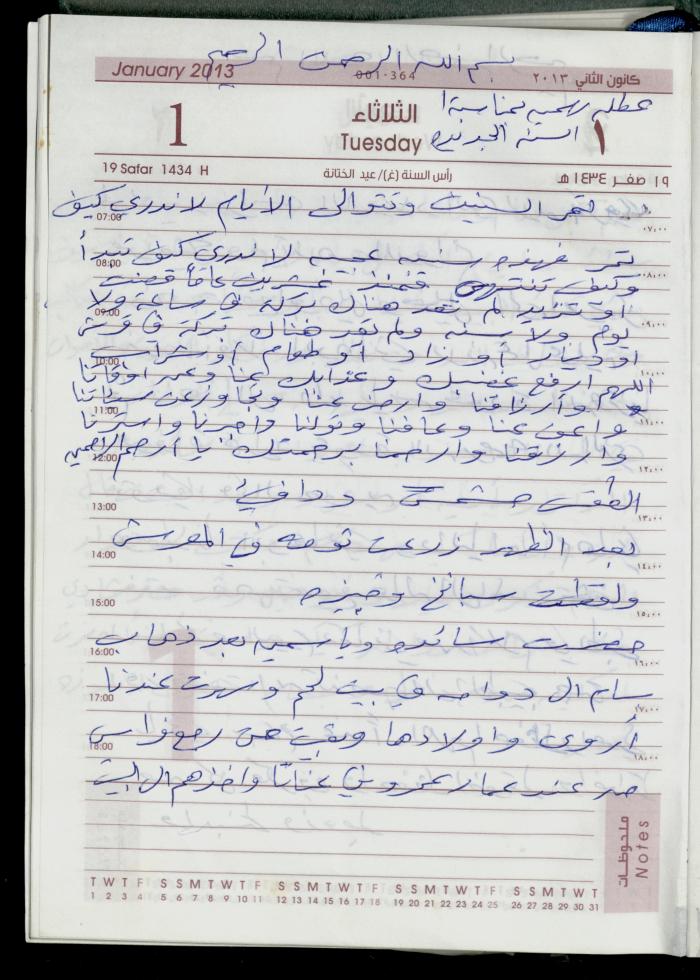 بسم الله الرحمن الرحيم
January 2013 001-364 كانون الثاني ٢٠١٣
عطله رسميه بمناسبة
1 الثلاثاء السنه الجديده ١
Tuesday
19 Safar 1434 H رأس السنة (غ)/ عيد الختانة ١٩ صفر ١٤٣٤ هـ
تمر السنين وتتوالى الأيام لا ندري كيف
07:00 ٠٧:٠٠
تمر فهذه سنه لا ندري كيف تبدأ
08:00 ٠٨:٠٠
وكيف تنتهي فمنذ عشرين عاماً قضت
او تزيد لم تعد هناك بركة في ساعة ولا
09:00 ٠٩:٠٠
يوم ولا سنه ولم تعد هناك بركة في قرش
او دينار أو زاد أو طعام أو شراب
10:00 ١٠:٠٠
اللهم ارفع غضبك وعذابك عنا وعن اوقاتنا
وارزاقنا وارض عنا وتجاوز عن سيئاتنا
11:00 ١١:٠٠
واعف عنا وعافنا وتولنا واجرنا واسترنا
وارزقنا وارحمنا برحمتك يا أرحم الراحمين
12:00 ١٢:٠٠
الطقس مشمس ودافيء
13:00 ١٣:٠٠
بعد الظهر زرعت ثومه في المعرش
14:00 ١٤:٠٠
ولقطت سبانخ وخبيزه
15:00 ١٥:٠٠
حضرت سائده وياسمين بعد ذهاب
16:00 ١٦:٠٠
سام الى دوامه في بيت لحم وسهرت عندنا
17:00 ١٧:٠٠
أروى واولادها وبقيت حتى رجع فراس
18:00 ١٨:٠٠
من عند عمار عمرو في عناتا واخذهم الى البيت
ملاحظات
Notes
T W T F S S M T W T F S S M T W T F S S M T W T F S S M T W T
1 2 3 4 5 6 7 8 9 10 11 12 13 14 15 16 17 18 19 20 21 22 23 24 25 26 27 28 29 30 31